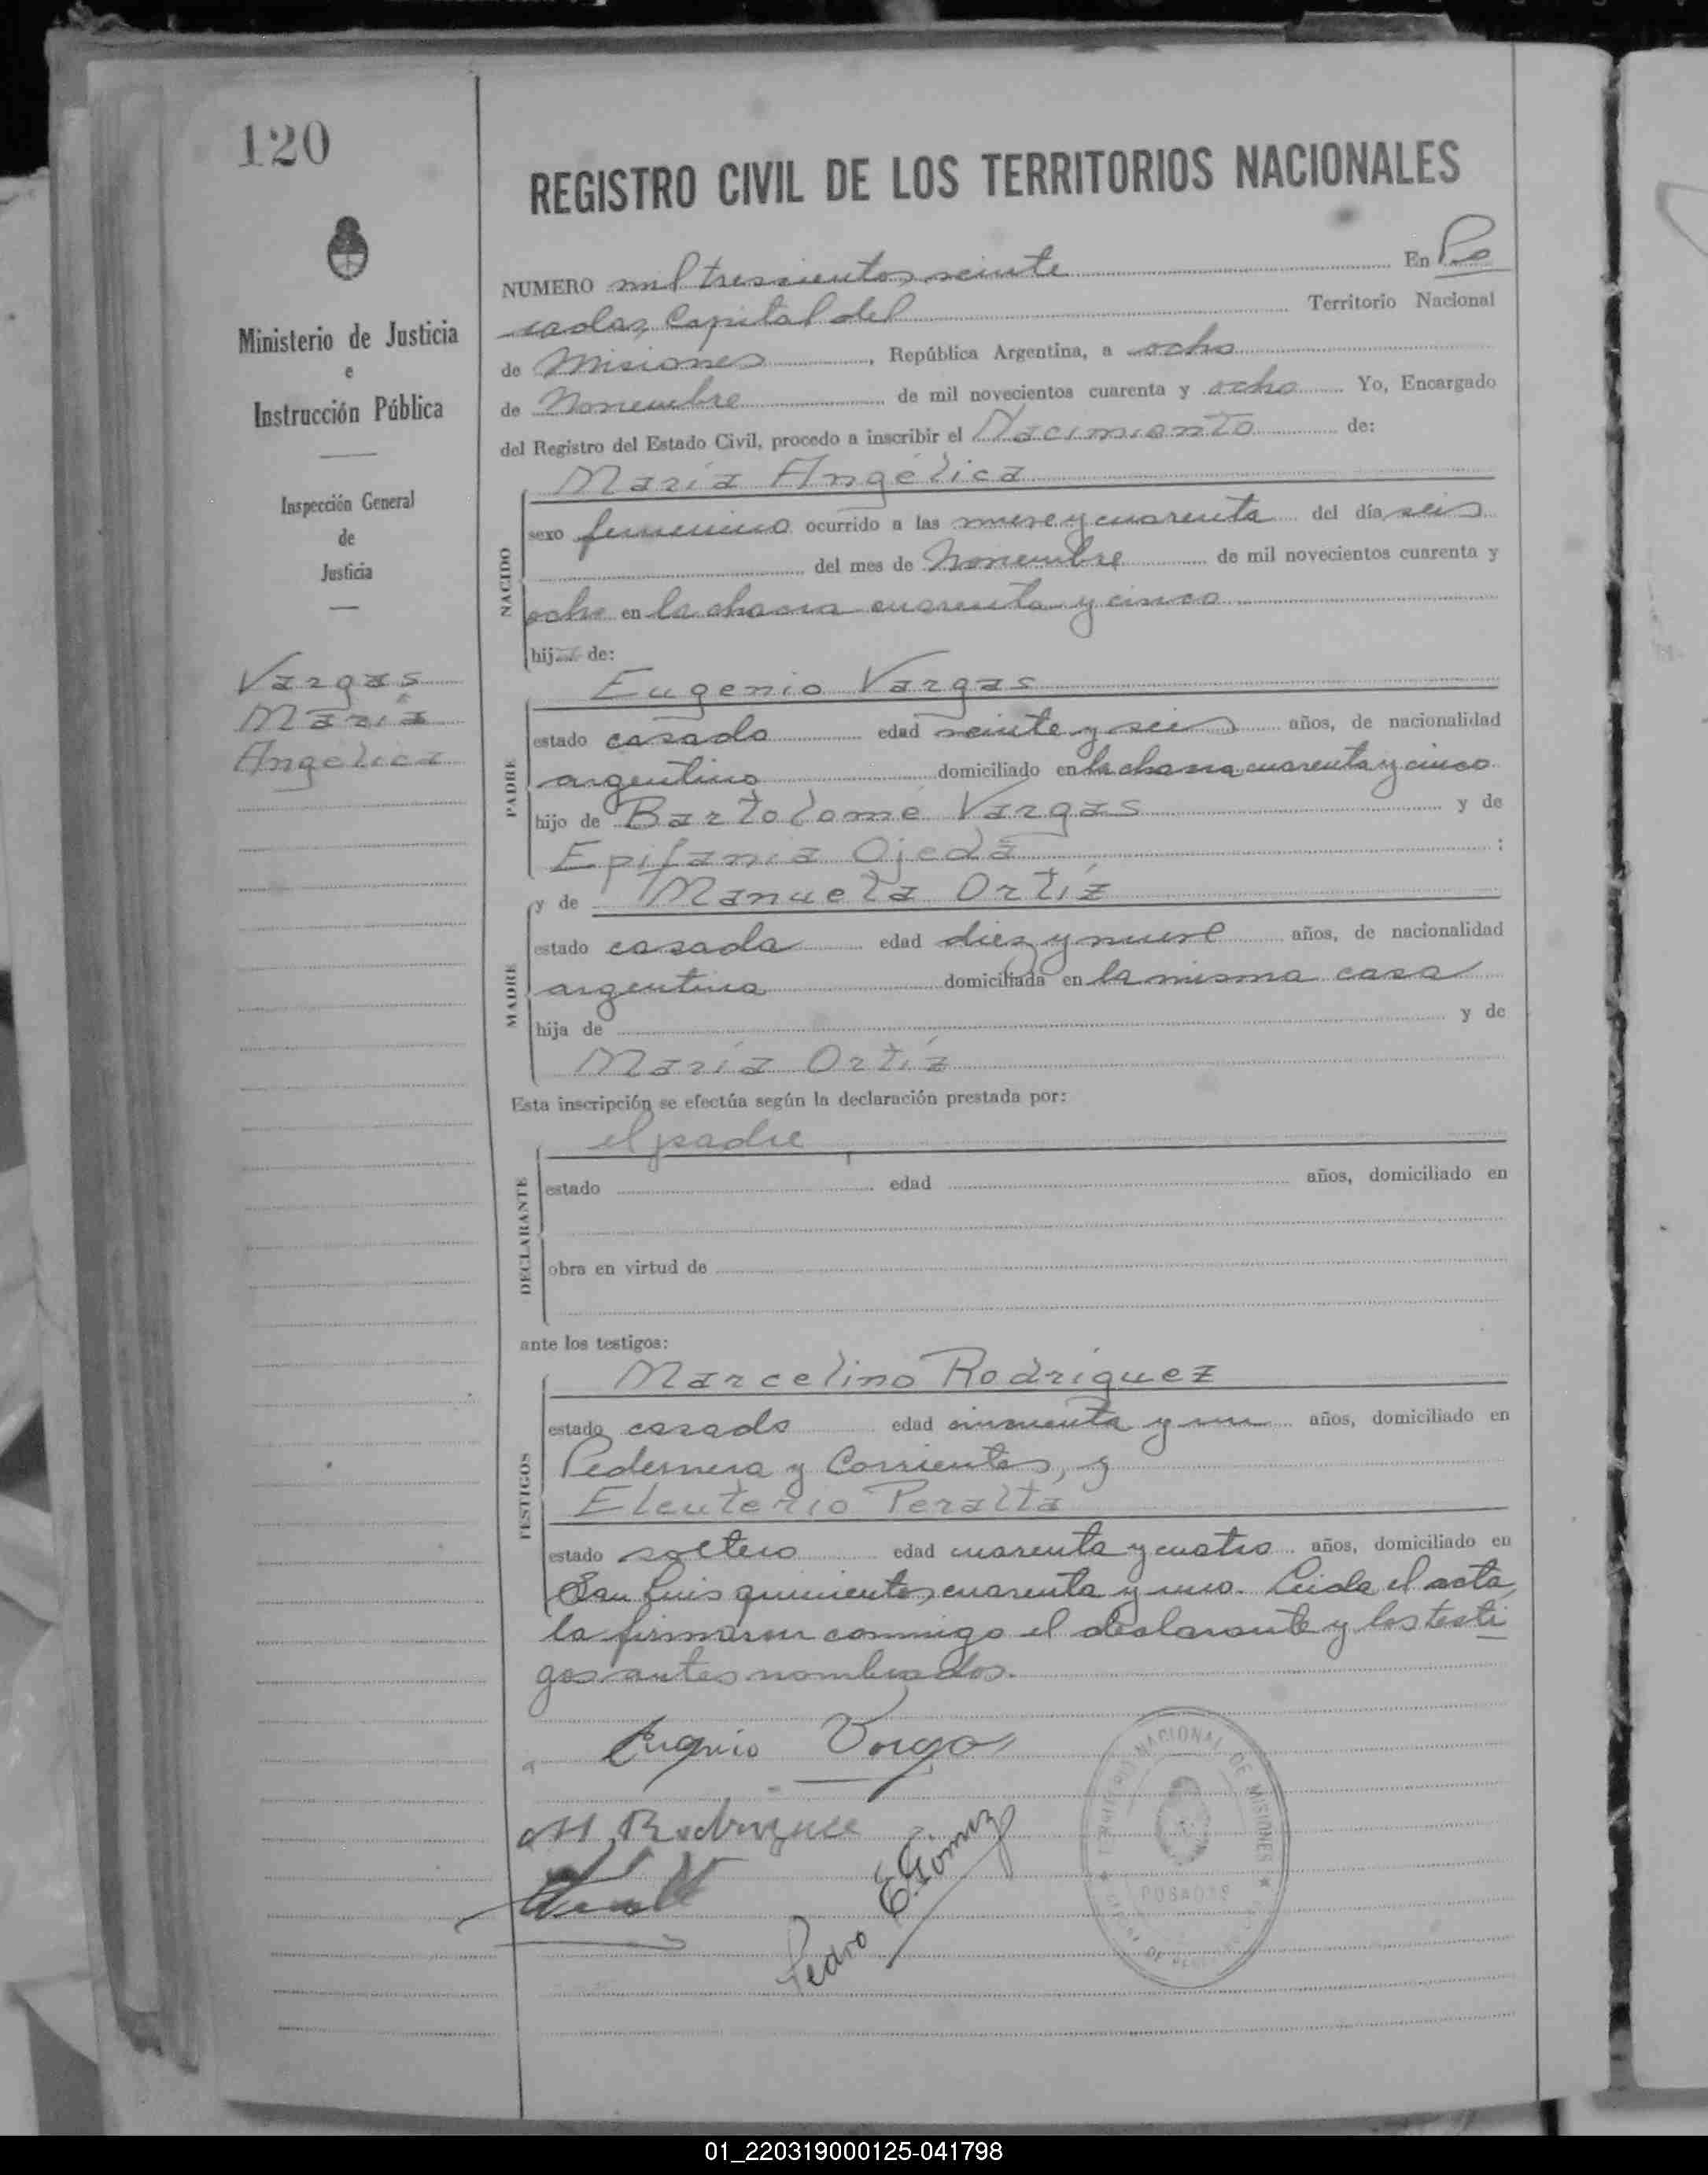 120
REGISTRO CIVIL DE LOS TERRITORIOS NACIONALES
NUMERO mil trescientos veinte En Po
sadas, Capital del Territorio Nacional
de Misiones, República Argentina, a ocho
de Noviembre de mil novecientos cuarenta y ocho Yo, Encargado
del Registro del Estado Civil, procedo a inscribir el Nacimiento de:
María Angélica
Ministerio de Justicia
e
Instrucción Pública
Inspección General
de
Justicia
Vargas
María
Angélica
NACIDO
sexo femenino ocurrido a las nueve y cuarenta del día seis
del mes de Noviembre de mil novecientos cuarenta y
ocho en la chacra cuarenta y cinco
hija de:
Eugenio Vargas
PADRE
estado casado edad veinte y seis años, de nacionalidad
argentino domiciliado en la chacra cuarenta y cinco
hijo de Bartolomé Vargas y de
Epifania Ojeda :
y de Manuela Ortíz
MADRE
estado casada edad diez y nueve años, de nacionalidad
argentina domiciliada en la misma casa
hija de y de
María Ortíz
Esta inscripción se efectúa según la declaración prestada por:
el padre
DECLARANTE
estado edad años, domiciliado en
obra en virtud de
ante los testigos:
Marcelino Rodríguez
TESTIGOS
estado casado edad cincuenta y un años, domiciliado en
Pedernera y Corrientes, y
Eleuterio Peralta
estado soltero edad cuarenta y cuatro años, domiciliado en
San Luis quinientos cuarenta y uno. Leída el acta,
la firmaron conmigo el declarante y los testi
gos antes nombrados.
Eugenio Vargas
M Rodriguez
Pedro E Gómez
NACIONAL DE MISIONES
POSADAS
01_220319000125-041798